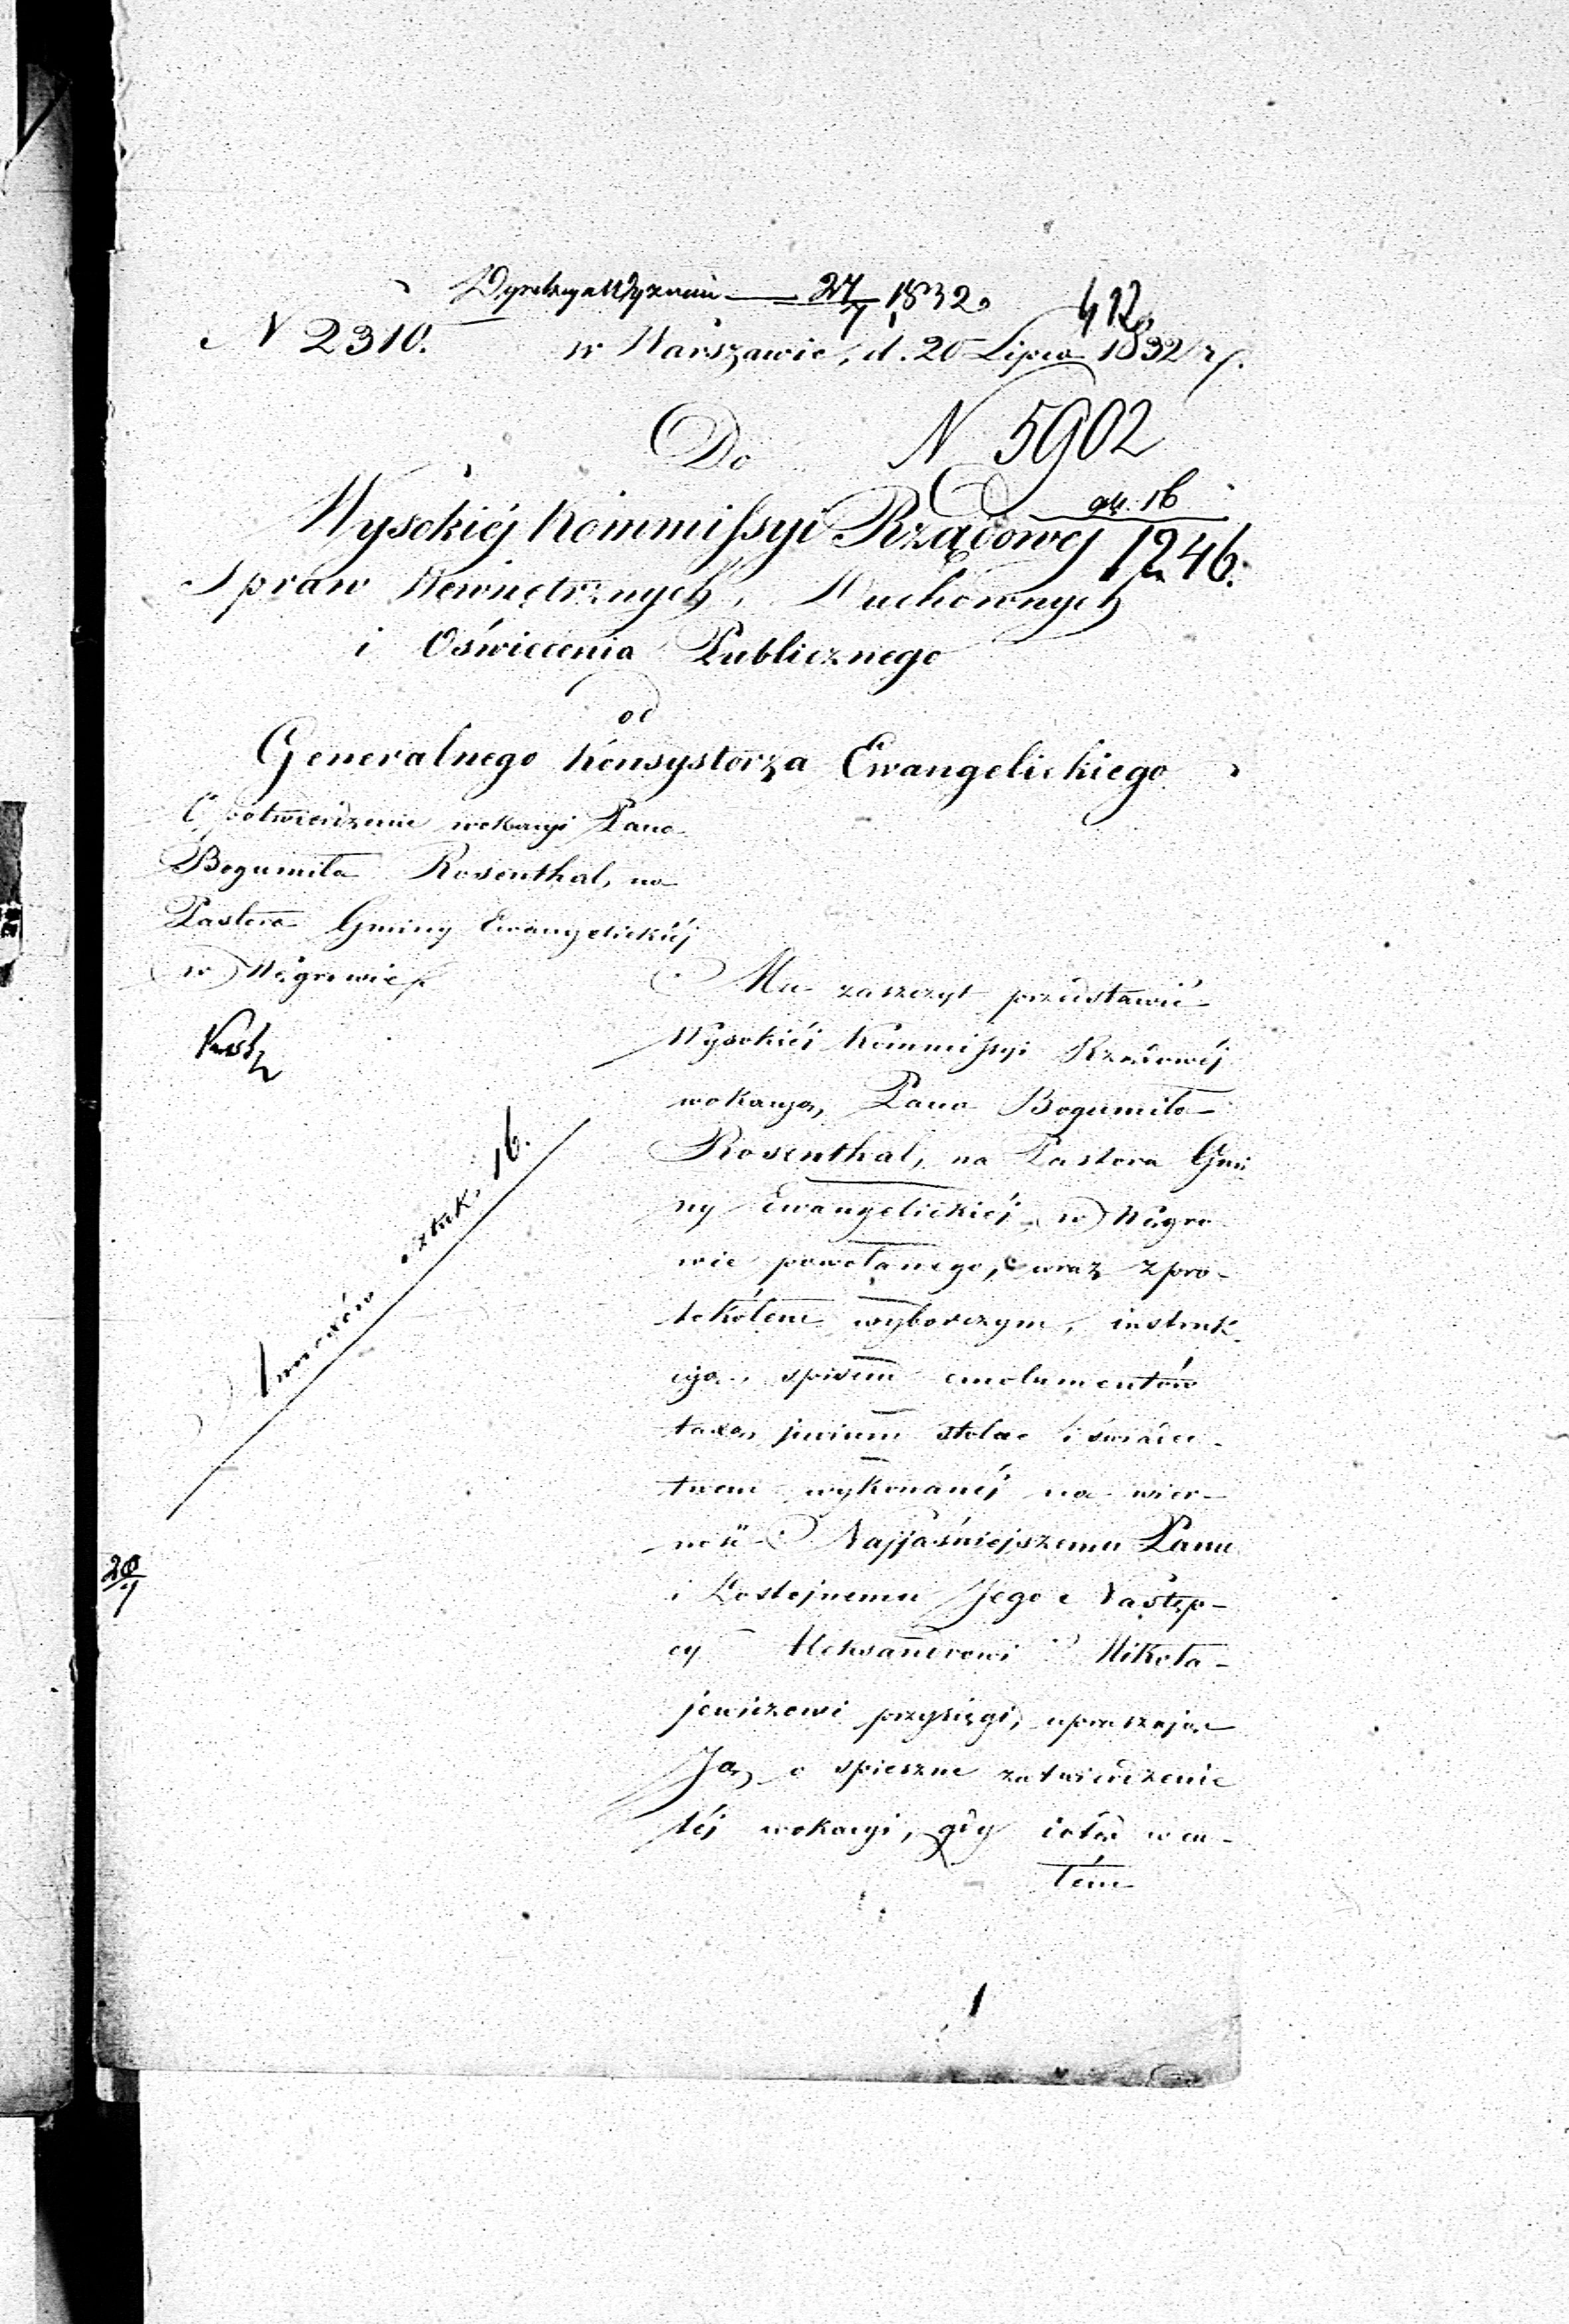 Dyrekcya Wyznań 27/7 1832.
412.
N 2310. w Warszawie, d. 20 Lipca 1832 r.
Do N 5902
Wysokiéj Kommissyi Rządowéj 1246.
Spraw Wewnętrznych, Duchownych
i Oświecenia Publicznego
od
Generalnego Konsystorza Ewangelickiego
O potwierdzenie wokacyi Pana
Bogumiła Rosenthal, na
Pastora Gminy Ewangelickiéj
w Węgrowie.
Ma zaszczyt przedstawić
Wysokiéj Kommissyi Rządowéj
wokacyą, Pana Bogumiła
Rosenthal, na Pastora Gmi
ny Ewangelickiéj w Węgro
wie powołanego, wraz z pro-
tokółem wyborczym, instruk
cyą, spisem emolumentów
taxą jurium stolae i świadec-
twem wykonanéj na wier-
ność Najjaśniejszemu Panu
i Dostojnemu Jego Następ-
cy Alexandrowi Mikoła-
jewiczowi przysięgi, upraszając
Ją, o spieszne zatwierdzenie
téj wokacyi, gdy
tém
sztuk 16.
28/7
1